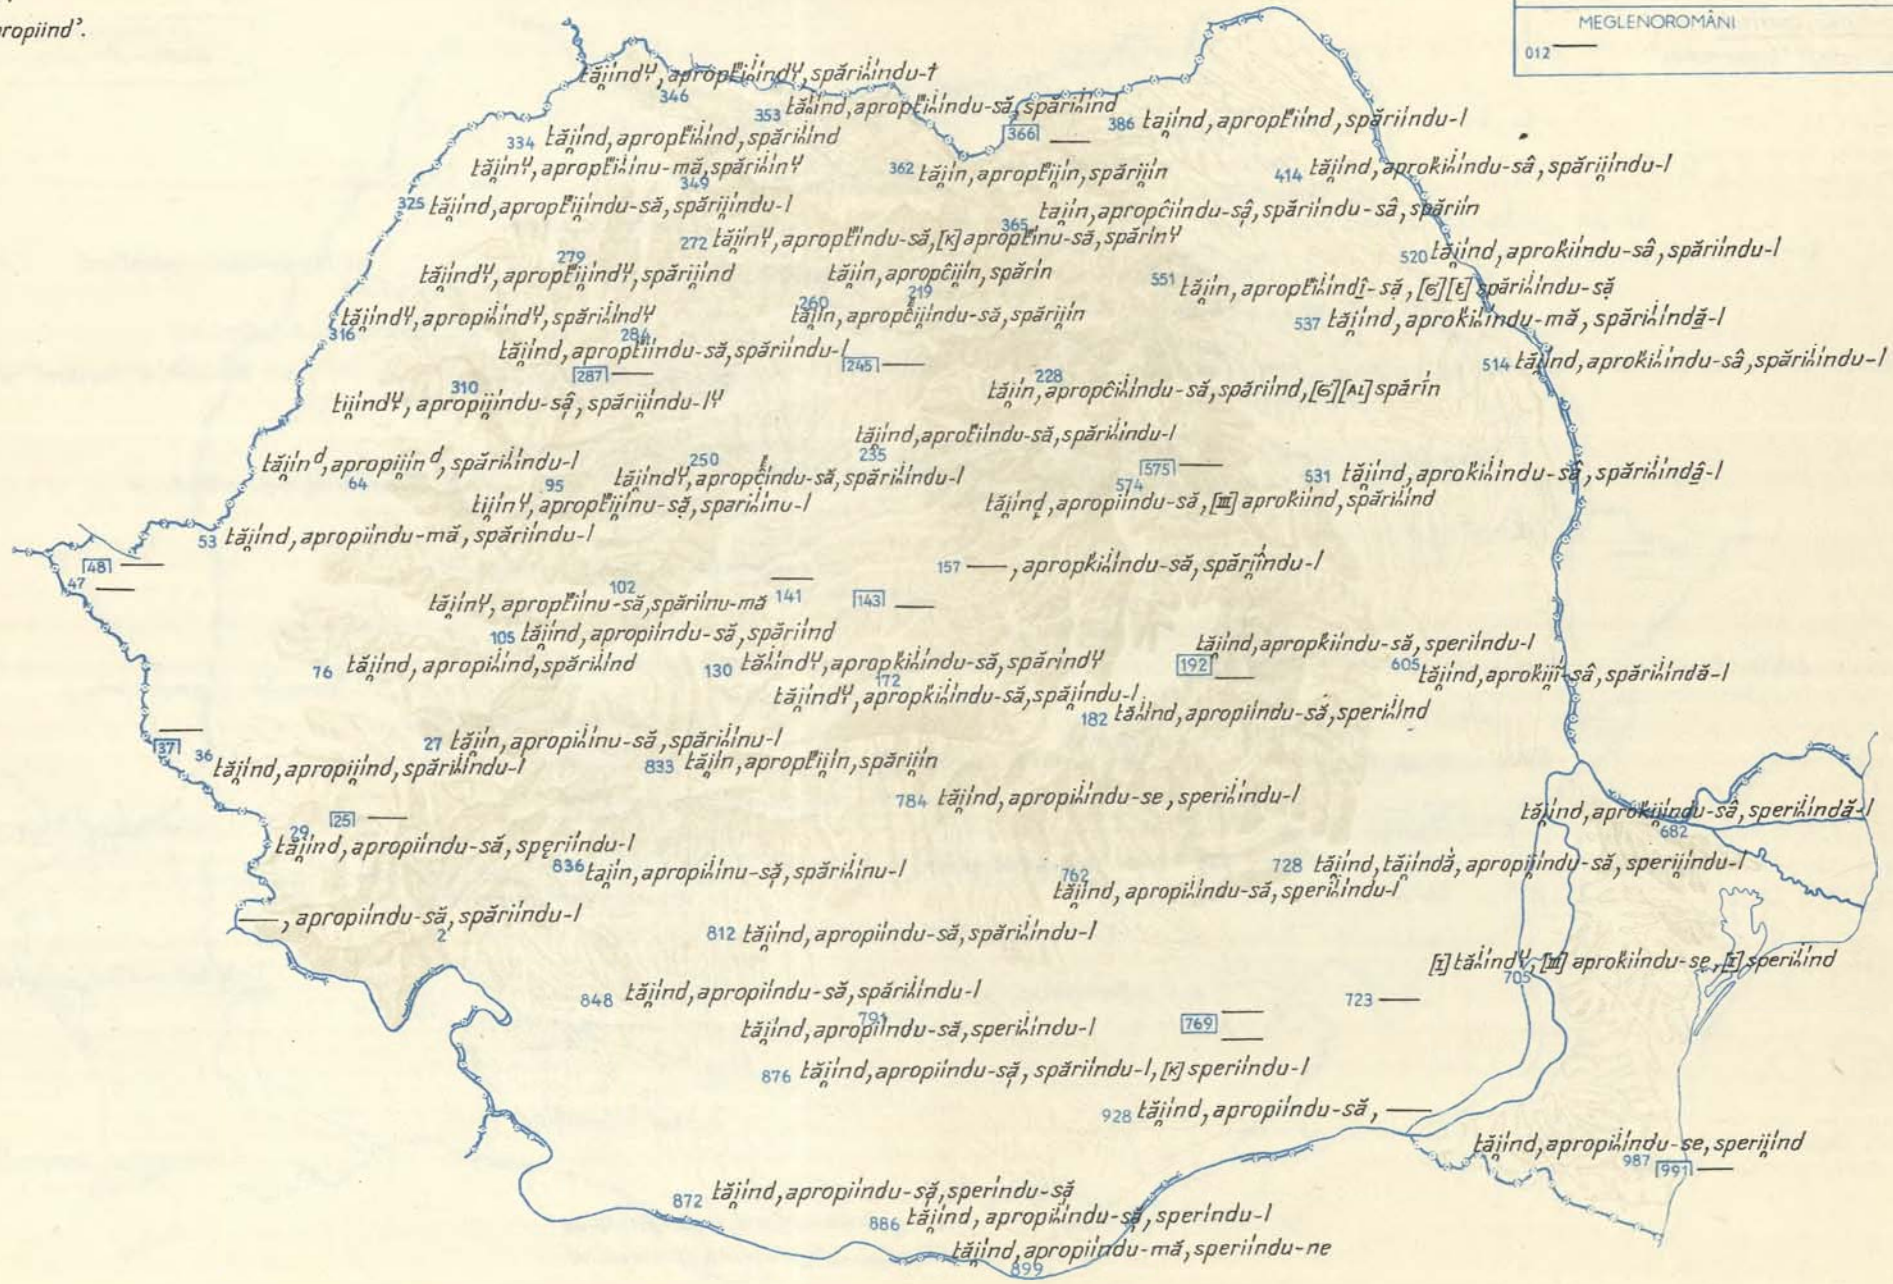 ropiind’.
MEGLENOROMÂNI
012 —
346 tăi̯indʸ, apropt́ii̯indʸ, spării̯indu-†
353 tăi̯ind, apropt́ii̯indu-să, spării̯ind
366 —
386 tai̯ind, apropt́iind, spăriindu-l
334 tăi̯ind, apropt́ii̯ind, spării̯ind
349 tăi̯inʸ, apropt́ii̯inu-mă, spării̯inʸ
362 tăi̯in, apropt́ii̯in, spării̯in
414 tăi̯ind, aproḱii̯indu-sâ, spării̯indu-l
325 tăi̯ind, apropt́ii̯indu-să, spării̯indu-l
365 tai̯in, apropĉiindu-sâ̦, spăriindu-sâ, spăriin
272 tăi̯inʸ, apropt́indu-să, [K] apropt́inu-să, spărinʸ
520 tăi̯ind, aproḱiindu-sâ, spăriindu-l
279 tăi̯indʸ, apropt́ii̯indʸ, spării̯ind
219 tăi̯in, apropĉii̯in, spărin
551 tăi̯in, apropt́ii̯indî-să, [G][E] spării̯indu-să̦
316 tăi̯indʸ, apropii̯indʸ, spării̯indʸ
260 tăi̯in, apropĉii̯indu-să, spării̯in
537 tăi̯ind, aproḱii̯indu-mă, spării̯indă-l
284 tăi̯ind, apropt́iindu-să, spăriindu-l
287 —
245 —
514 tăi̯ind, aproḱii̯indu-sâ, spării̯indu-l
310 tii̯indʸ, apropii̯indu-sâ̦, spării̯indu-lʸ
228 tăi̯in, apropĉii̯indu-să, spăriind, [G][AL] spărin
235 tăi̯ind, aprot́iindu-să, spării̯indu-l
64 tăi̯inᵈ, apropii̯inᵈ, spării̯indu-l
250 tăi̯indʸ, apropĉindu-să, spării̯indu-l
575 —
531 tăi̯ind, aproḱii̯indu-sâ̦, spării̯indâ-l
95 tii̯inʸ, apropt́ii̯inu-să̦, sparii̯inu-l
574 tăi̯ind, apropiindu-să, [III] aproḱiind, spării̯ind
53 tăi̯ind, apropiindu-mă, spăriindu-l
48 —
47 —
157 —, apropḱii̯indu-să, spării̯îndu-l
102 tăi̯inʸ, apropt́iinu-să, spăriinu-mă
141 —
143 —
105 tăi̯ind, apropiindu-să, spăriind
tăi̯ind, apropḱiindu-să, speriindu-l
192 —
76 tăi̯ind, apropii̯ind, spării̯ind
130 tăi̯indʸ, apropḱii̯indu-să, spărindʸ
605 tăi̯ind, aproḱii̯î-sâ, spării̯indă-l
172 tăi̯indʸ, apropḱii̯indu-să, spăi̯indu-l
182 tăi̯ind, apropiindu-să, sperii̯ind
37 —
27 tăi̯in, apropii̯inu-să, spării̯inu-l
36 tăi̯ind, apropii̯ind, spării̯indu-l
833 tăi̯in, apropt́ii̯in, spării̯in
784 tăi̯ind, apropii̯indu-se, sperii̯indu-l
682 tăi̯ind, aproḱii̯indu-sâ, sperii̯indă-l
25 —
29 tăi̯ind, apropiindu-să, spęriindu-l
836 tai̯in, apropii̯inu-să̦, spării̯inu-l
728 tăi̯ind, tăi̯indă, apropii̯indu-să, sperii̯indu-l
762 tăi̯ind, apropii̯indu-să, sperii̯indu-l
2 —, apropiindu-să, spăriindu-l
812 tăi̯ind, apropiindu-să, spării̯indu-l
705 [I] tăi̯indʸ, [III] aproḱiindu-se, [I] sperii̯ind
848 tăi̯ind, apropiindu-să, spării̯indu-l
723 —
791 tăi̯ind, apropiindu-să, sperii̯indu-l
769 —
876 tăi̯ind, apropiindu-să̦, spăriindu-l, [K] speriindu-l
928 tăi̯ind, apropiindu-să, —
987 tăi̯ind, apropii̯indu-se, sperii̯ind
991 —
872 tăi̯ind, apropiindu-să̦, sperindu-să̦
886 tăi̯ind, apropii̯indu-să̦, sperindu-l
899 tăi̯ind, apropiindu-mă, speriindu-ne